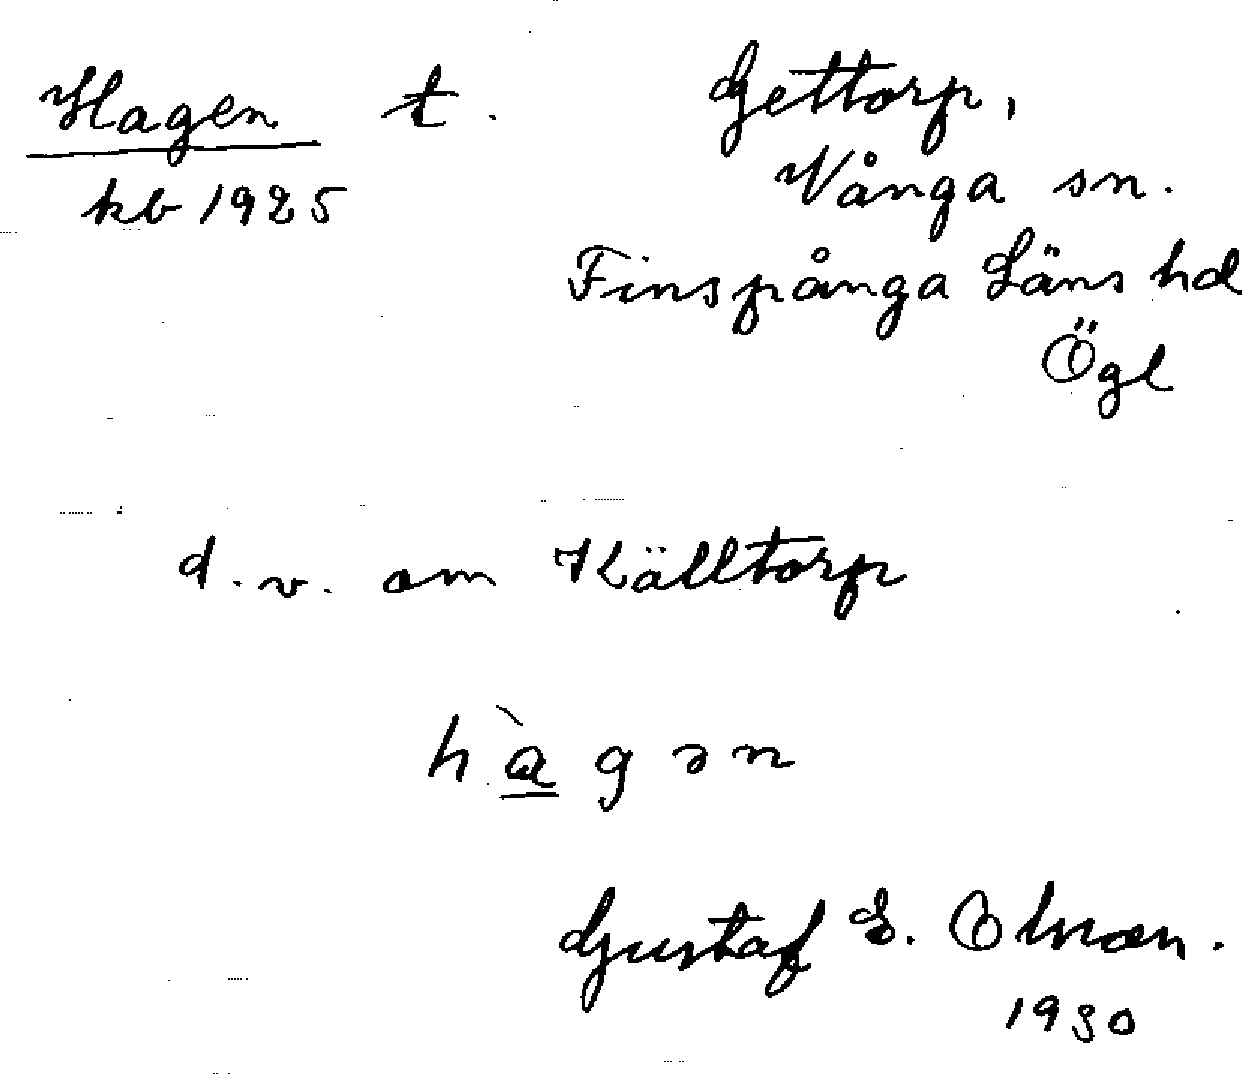 Hagen t. Gettorp,
kb 1925 Vånga sn.
Finspånga Läns hd
Ögl
d.v. om Källtorp
hà̱gən
Gustaf E. Olsson.
1930